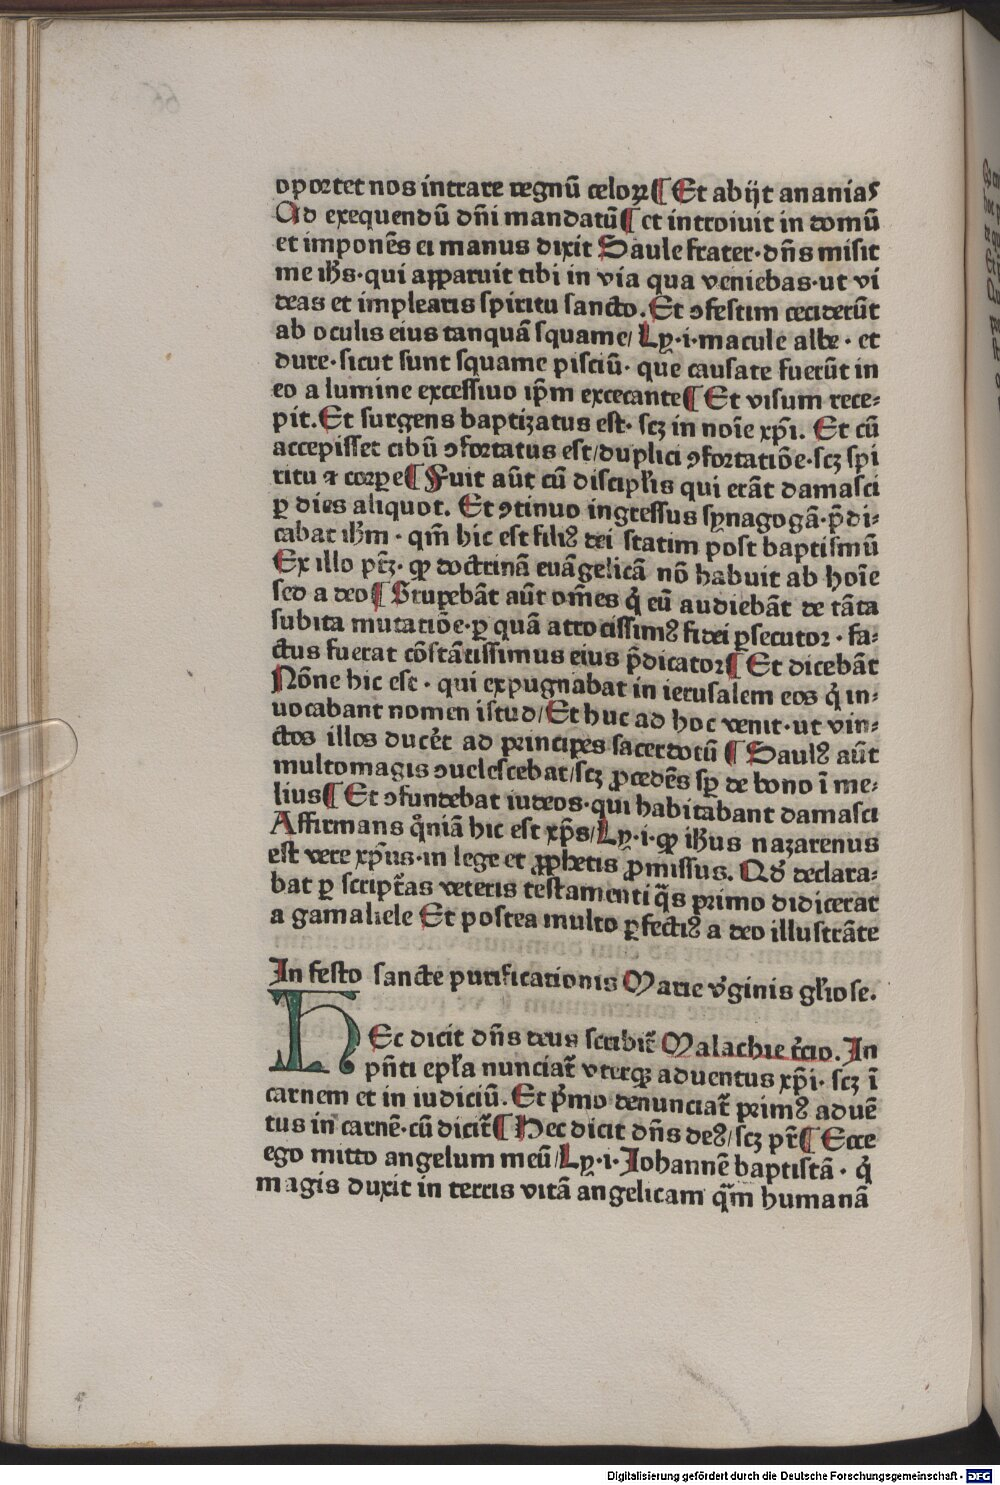 oportet nos intrare regnū celoꝝ ¶ Et abijt ananias
Ad exequendū dn̄i mandatū ¶ et introiuit in domū
et imponēs ei manus dixit Saule frater · dn̄s misit
me ih̄s · qui apparuit tibi in via qua veniebas · ut vi
deas et implearis spiritu sancto. Et ꝯfestim ceciderūt
ab oculis eius tanquā squame/ Ly · i · macule albe · et
dure · sicut sunt squame pisciū · que causate fuerūt in
eo a lumine excessiuo ip̄m excecante ¶ Et visum rece⸗
pit. Et surgens baptizatus est · scꝫ in noīe xp̄i. Et cū
accepisset cibū ꝯfortatus est/ duplici ꝯfortatiōe · scꝫ spi
ritu ⁊ corꝑe ¶ Fuit aūt cū discipl̄is qui erāt damasci
ꝑ dies aliquot. Et ꝯtinuo ingressus synagogā · p̄di⸗
cabat ih̄m · qm̄ hic est filiꝰ dei statim post baptismū
Ex illo ptꝫ · ꝙ doctrinā euāgelicā nō habuit ab hoīe
sed a deo ¶ Stupebāt aūt om̄es q̇ eū audiebāt de tāta
subita mutatiōe · ꝑ quā atrocissimꝰ fidei ꝑsecutor · fa⸗
ctus fuerat cōstātissimus eius p̄dicator ¶ Et dicebāt
Nōne hic est · qui expugnabat in ierusalem eos q̇ in⸗
uocabant nomen istud/ Et huc ad hoc venit · ut vin⸗
ctos illos duceret ad principes sacerdotū ¶ Saulꝰ aūt
multomagis ꝯualescebat/ scꝫ ꝓcedēs sp̱ de bono ī me⸗
lius ¶ Et ꝯfundebat iudeos · qui habitabant damasci
Affirmans q̄niā hic est xp̄s/ Ly · i · ꝙ ih̄us nazarenus
est vere xp̄us · in lege et ꝓphetis ꝓmissus. Qd̄ declara⸗
bat ꝑ script̄as veteris testamenti q̄s primo didicerat
a gamaliele Et postea multo ꝑfectiꝰ a deo illustrāte
In festo sancte purificationis Marie v̓ginis gl̄iose.
HEc dicit dn̄s deus scribit̄ Malachie t̓cio. In
pn̄ti epl̄a nunciat̄ vterqꝫ aduentus xp̄i · scꝫ ī
carnem et in iudiciū. Et p̓mo denunciat̄ primꝰ aduē
tus in carnē · cū dicit̄ ¶ Hec dicit dn̄s deꝰ/ scꝫ pr̄ ¶ Ecce
ego mitto angelum meū/ Ly · i · Johannē baptistā · q̇
magis duxit in terris vitā angelicam q̄m humanā
Digitalisierung gefördert durch die Deutsche Forschungsgemeinschaft - DFG